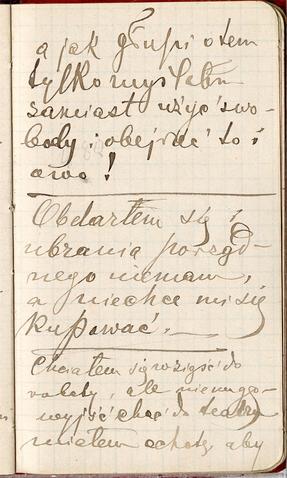 a jak głupi o tem
tylko myślałem
zamiast użyć swo-
body i obejrzeć to i
owo!
Obdarłem się i
ubrania porząd-
nego niemam,
a niechce mi się
kupować.
Chciałem się wziąść do
roboty, ale niemogę
wyjść choć do teatru
miałem ochotę, aby